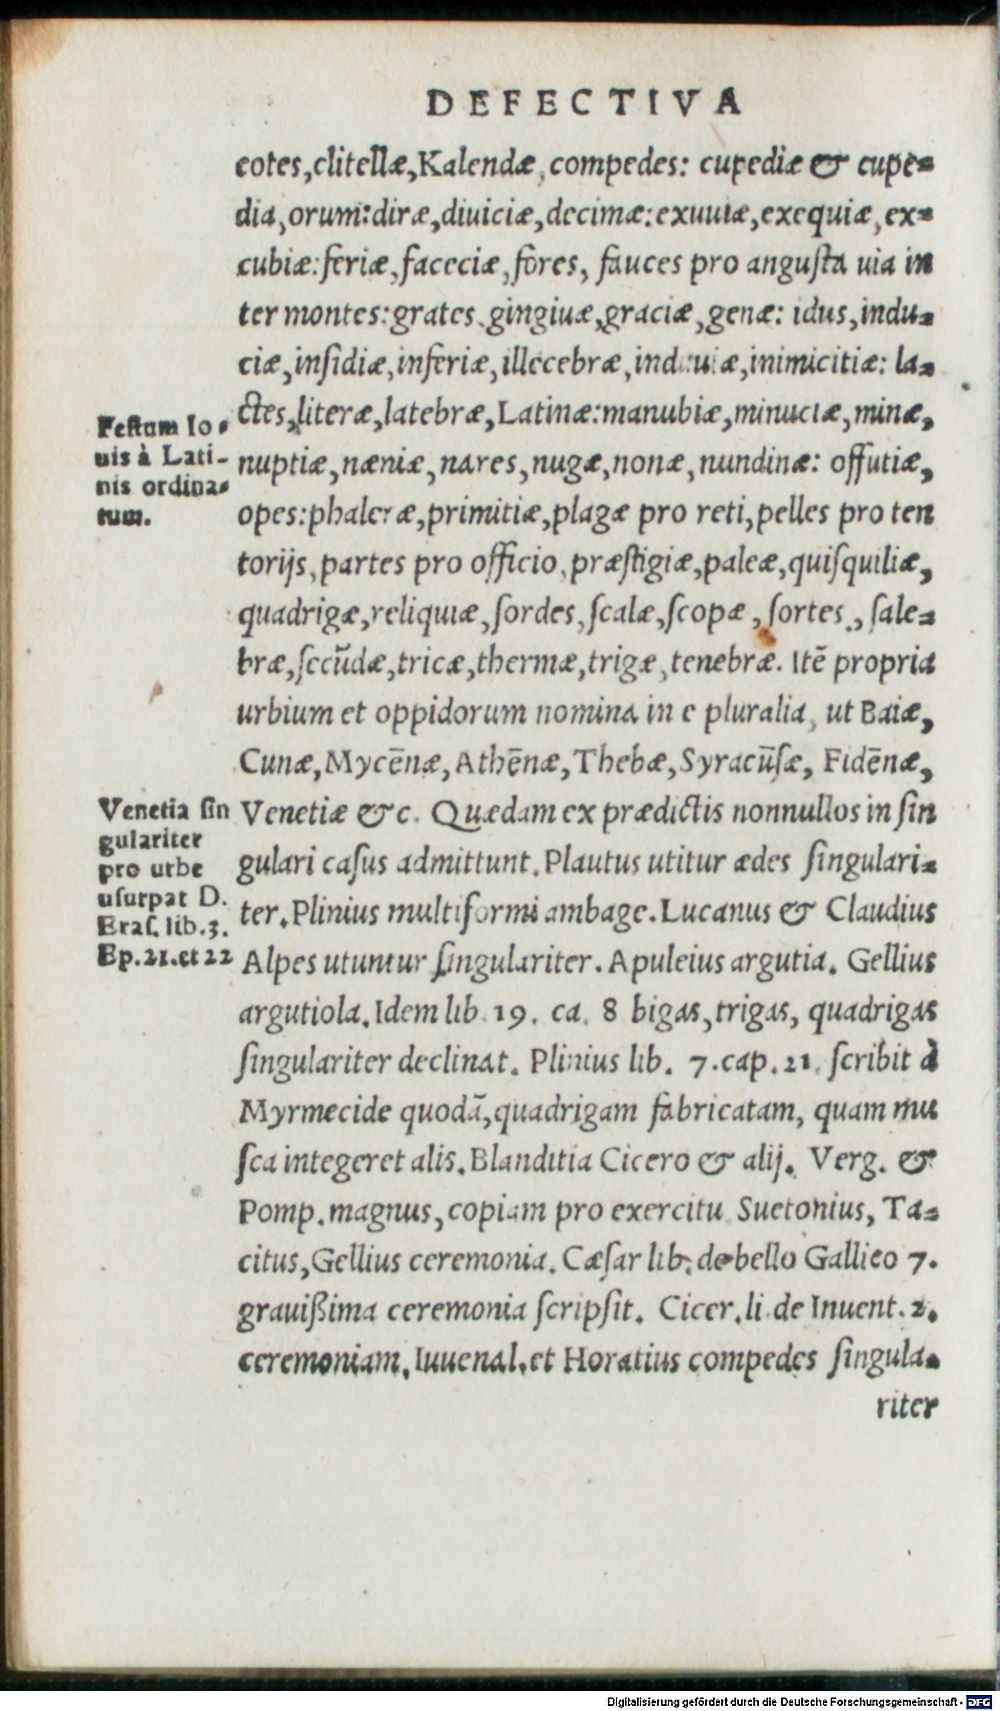 DEFECTIVA
cotes,clitellæ,Kalendæ,compedes: cupediæ & cupe-
dia,orum:diræ,diuiciæ,decimæ:exuuiæ,exequiæ,ex-
cubiæ:feriæ,faceciæ,fores, fauces pro angusta uia in
ter montes:grates,gingiuæ,graciæ,genæ: idus,indu-
ciæ,insidiæ,inferiæ,illecebræ,inimicitiæ: la-
ctes,literæ,latebræ,Latinæ:manubiæ,minuciæ,minæ,
Festum Io-
uis à Lati-
nis ordina-
tum.
nuptiæ,næniæ,nares,nugæ,nonæ,nundinæ: offutiæ,
opes:phaleræ,primitiæ,plagæ pro reti,pelles pro ten
torijs,partes pro officio,præstigiæ,paleæ,quisquiliæ,
quadrigæ,reliquiæ,sordes,scalæ,scopæ,sortes, sale-
bræ,secūdæ,tricæ,thermæ,trigæ,tenebræ. Itē propria
urbium et oppidorum nomina in e pluralia, ut Baiæ,
Cunæ,Mycēnæ,Athēnæ,Thebæ,Syracūsæ, Fidēnæ,
Venetiæ &c. Quædam ex prædictis nonnullos in sin
Venetia sin
gulariter
pro urbe
usurpat D.
Eras. lib.3.
Ep.21.et 22
gulari casus admittunt. Plautus utitur ædes singulari-
ter. Plinius multiformi ambage. Lucanus & Claudius
Alpes utuntur singulariter. Apuleius argutia. Gellius
argutiola. Idem lib. 19. ca. 8 bigas,trigas, quadrigas
singulariter declinat. Plinius lib. 7.cap.21. scribit à
Myrmecide quodā,quadrigam fabricatam, quam mu
sca integeret alis. Blanditia Cicero & alij. Verg. &
Pomp.magnus,copiam pro exercitu. Suetonius, Ta-
citus,Gellius ceremonia. Cæsar lib. de bello Gallico 7.
grauißima ceremonia scripsit. Cicer.li.de Inuent. 2.
ceremoniam. Iuuenal.et Horatius compedes singula-
riter
Digitalisierung gefördert durch die Deutsche Forschungsgemeinschaft - DFG